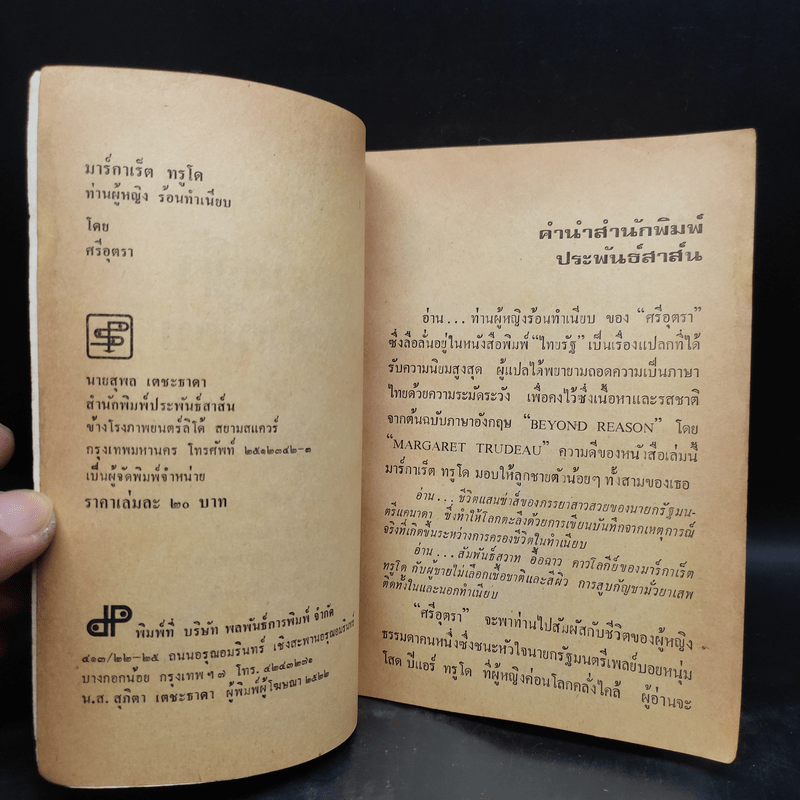 มาร์กาเร็ต ทรูโด
ท่านผู้หญิง ร้อนทำเนียบ
โดย
ศรีอุตรา
นายสุพล เตชะธาดา
สำนักพิมพ์ประพันธ์สาส์น
ข้างโรงภาพยนตร์ลิโด้ สยามสแควร์
กรุงเทพมหานคร โทรศัพท์ ๒๕๑๒๓๔๒-๓
เป็นผู้จัดพิมพ์จำหน่าย
ราคาเล่มละ ๒๐ บาท
พิมพ์ที่ บริษัท พลพันธ์การพิมพ์ จำกัด
๔๑๓/๒๒-๒๕ ถนนอรุณอมรินทร์ เชิงสะพานอรุณอมรินทร์
บางกอกน้อย กรุงเทพฯ ๗ โทร. ๔๒๔๓๒๗๑
น.ส. สุภิตา เตชะธาดา ผู้พิมพ์ผู้โฆษณา ๒๕๒๒
คำนำสำนักพิมพ์
ประพันธ์สาส์น
อ่าน... ท่านผู้หญิงร้อนทำเนียบ ของ “ศรีอุตรา”
ซึ่งลือลั่นอยู่ในหนังสือพิมพ์ “ไทยรัฐ” เป็นเรื่องแปลกที่ได้
รับความนิยมสูงสุด ผู้แปลได้พยายามถอดความเป็นภาษา
ไทยด้วยความระมัดระวัง เพื่อคงไว้ซึ่งเนื้อหาและรสชาติ
จากต้นฉบับภาษาอังกฤษ “BEYOND REASON” โดย
“MARGARET TRUDEAU” ความดีของหนังสือเล่มนี้
มาร์กาเร็ต ทรูโด มอบให้ลูกชายตัวน้อยๆ ทั้งสามของเธอ
อ่าน...ชีวิตแสนซ่าส์ของภรรยาสาวสวยของนายกรัฐมน-
ตรีแคนาดา ซึ่งทำให้โลกตะลึงด้วยการเขียนบันทึกจากเหตุการณ์
จริงที่เกิดขึ้นระหว่างการครองชีวิตในทำเนียบ
อ่าน...สัมพันธ์สวาท อื้อฉาว คาวโลกีย์ของมาร์กาเร็ต
ทรูโด กับผู้ชายไม่เลือกเชื้อชาติและสีผิว การสูบกัญชามั่วยาเสพ
ติดทั้งในและนอกทำเนียบ
“ศรีอุตรา” จะพาท่านไปสัมผัสกับชีวิตของผู้หญิง
ธรรมดาคนหนึ่งซึ่งชนะหัวใจนายกรัฐมนตรีเพลย์บอยหนุ่ม
โสด ปีแอร์ ทรูโด ที่ผู้หญิงค่อนโลกคลั่งไคล้ ผู้อ่านจะ